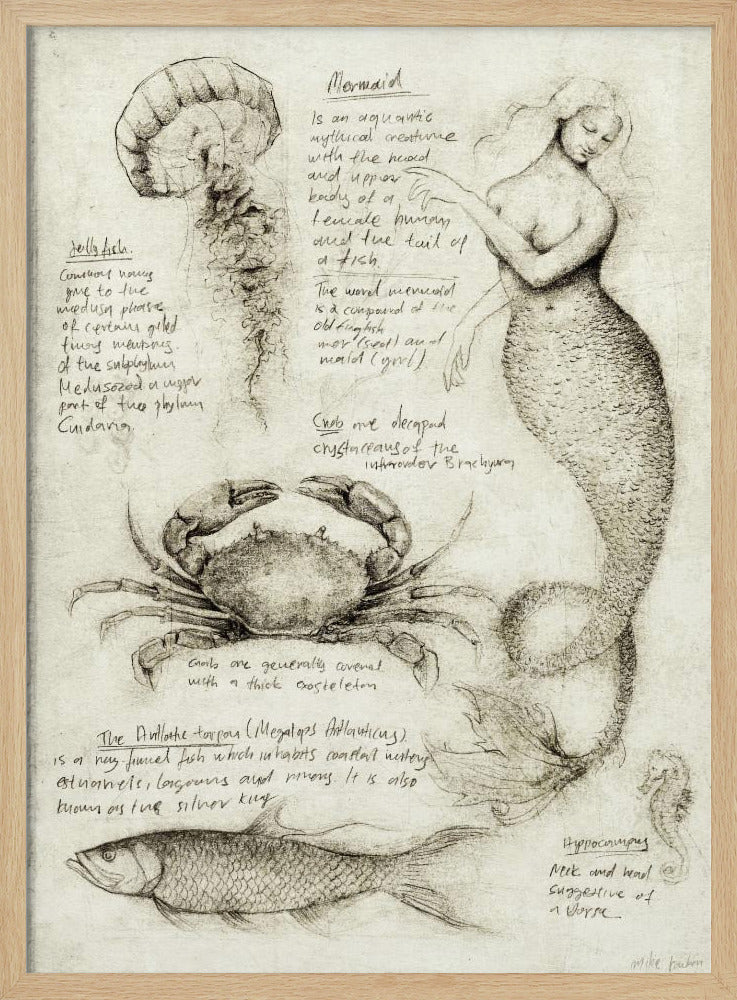 Mermaid
Is an aquantic
mythical creature
with the head
and upper
body of a
female human
and the tail of
a fish.
The word mermaid
is a compound of the
old English
mer (sea) and
maid (girl)
Jelly fish.
Common names
give to the
medusa phase
of certain
of the subphylum
Medusozoa a major
part of the phylum
Cnidaria.
Crab are decapod
crystaceans of the
infraorder Brachyura
Crab are generally covered
with a thick exosteleton
The Atllantic tarpon (Megalops Atllanticus)
is a ray-finned fish which inhabits coastal waters
estuaries, lagoons and rivers. It is also
known as the silver king
Hippocampus
Neck and head
suggestive of
a Horse
Mike